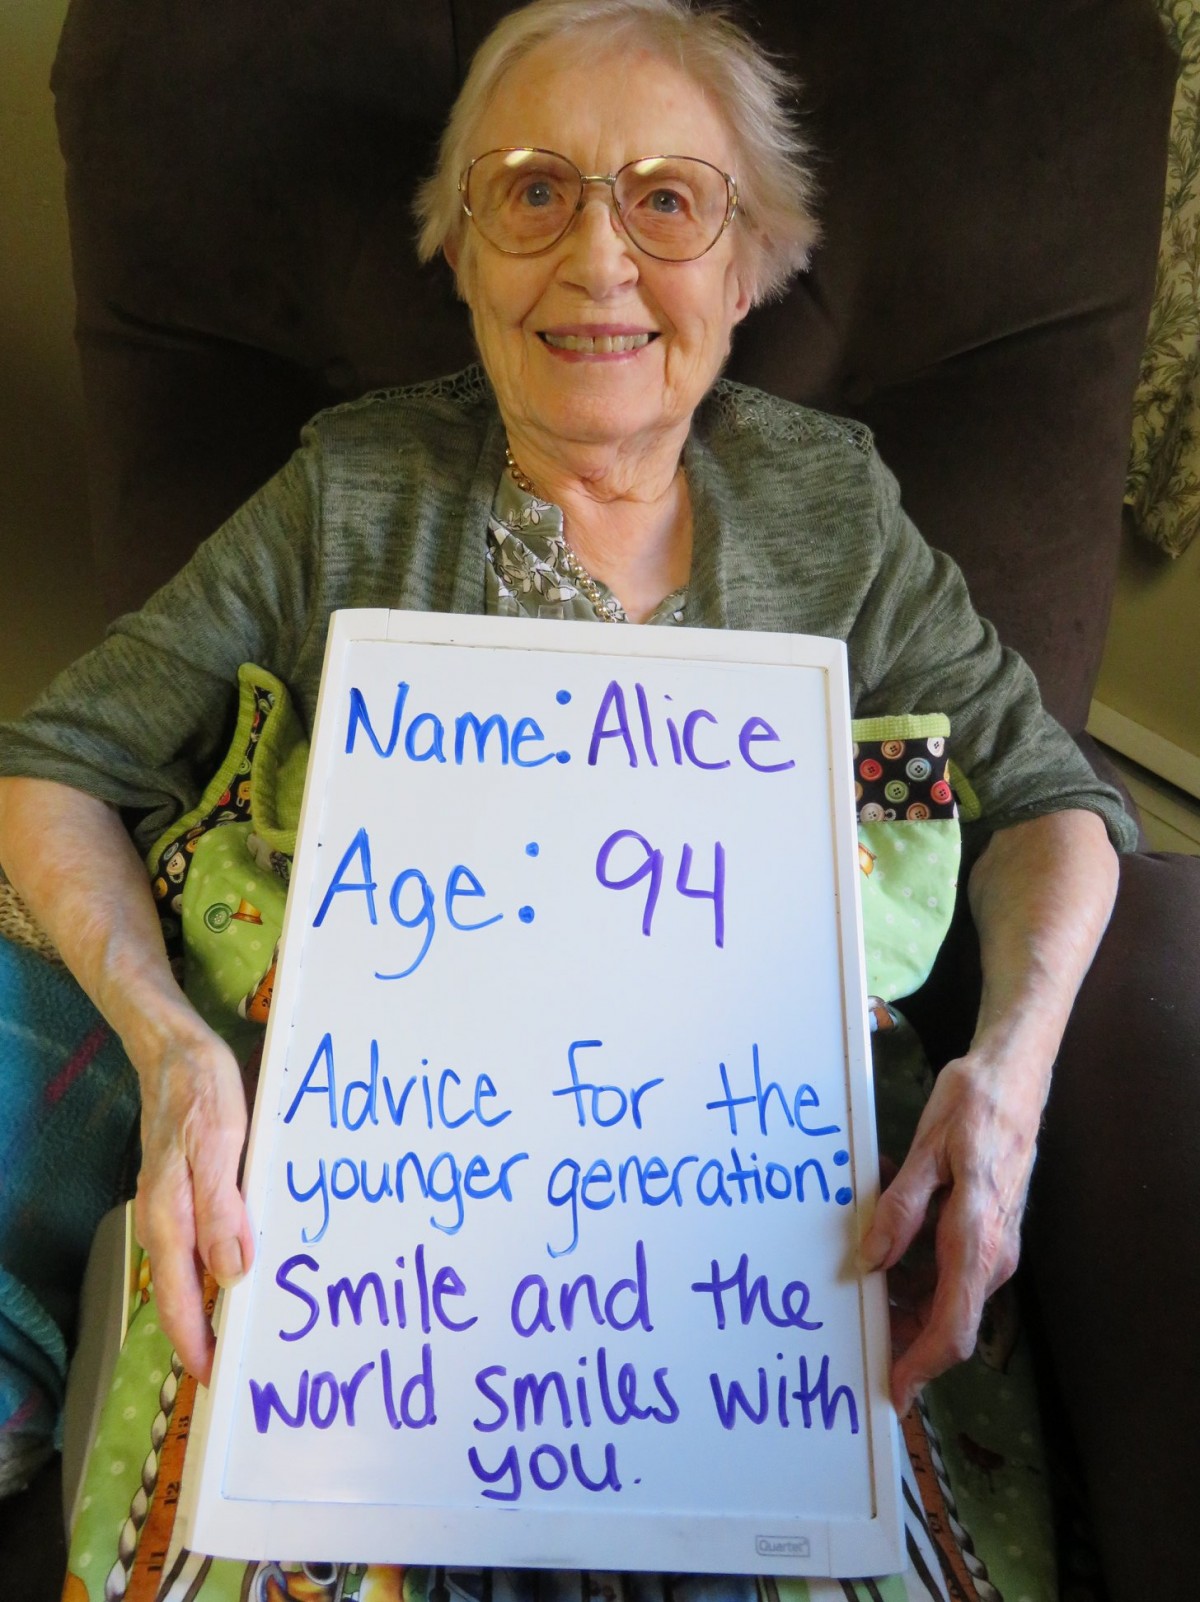 Name: Alice
Age: 94
Advice for the
younger generation:
Smile and the
world smiles with
you.
Quartet
11
12
13